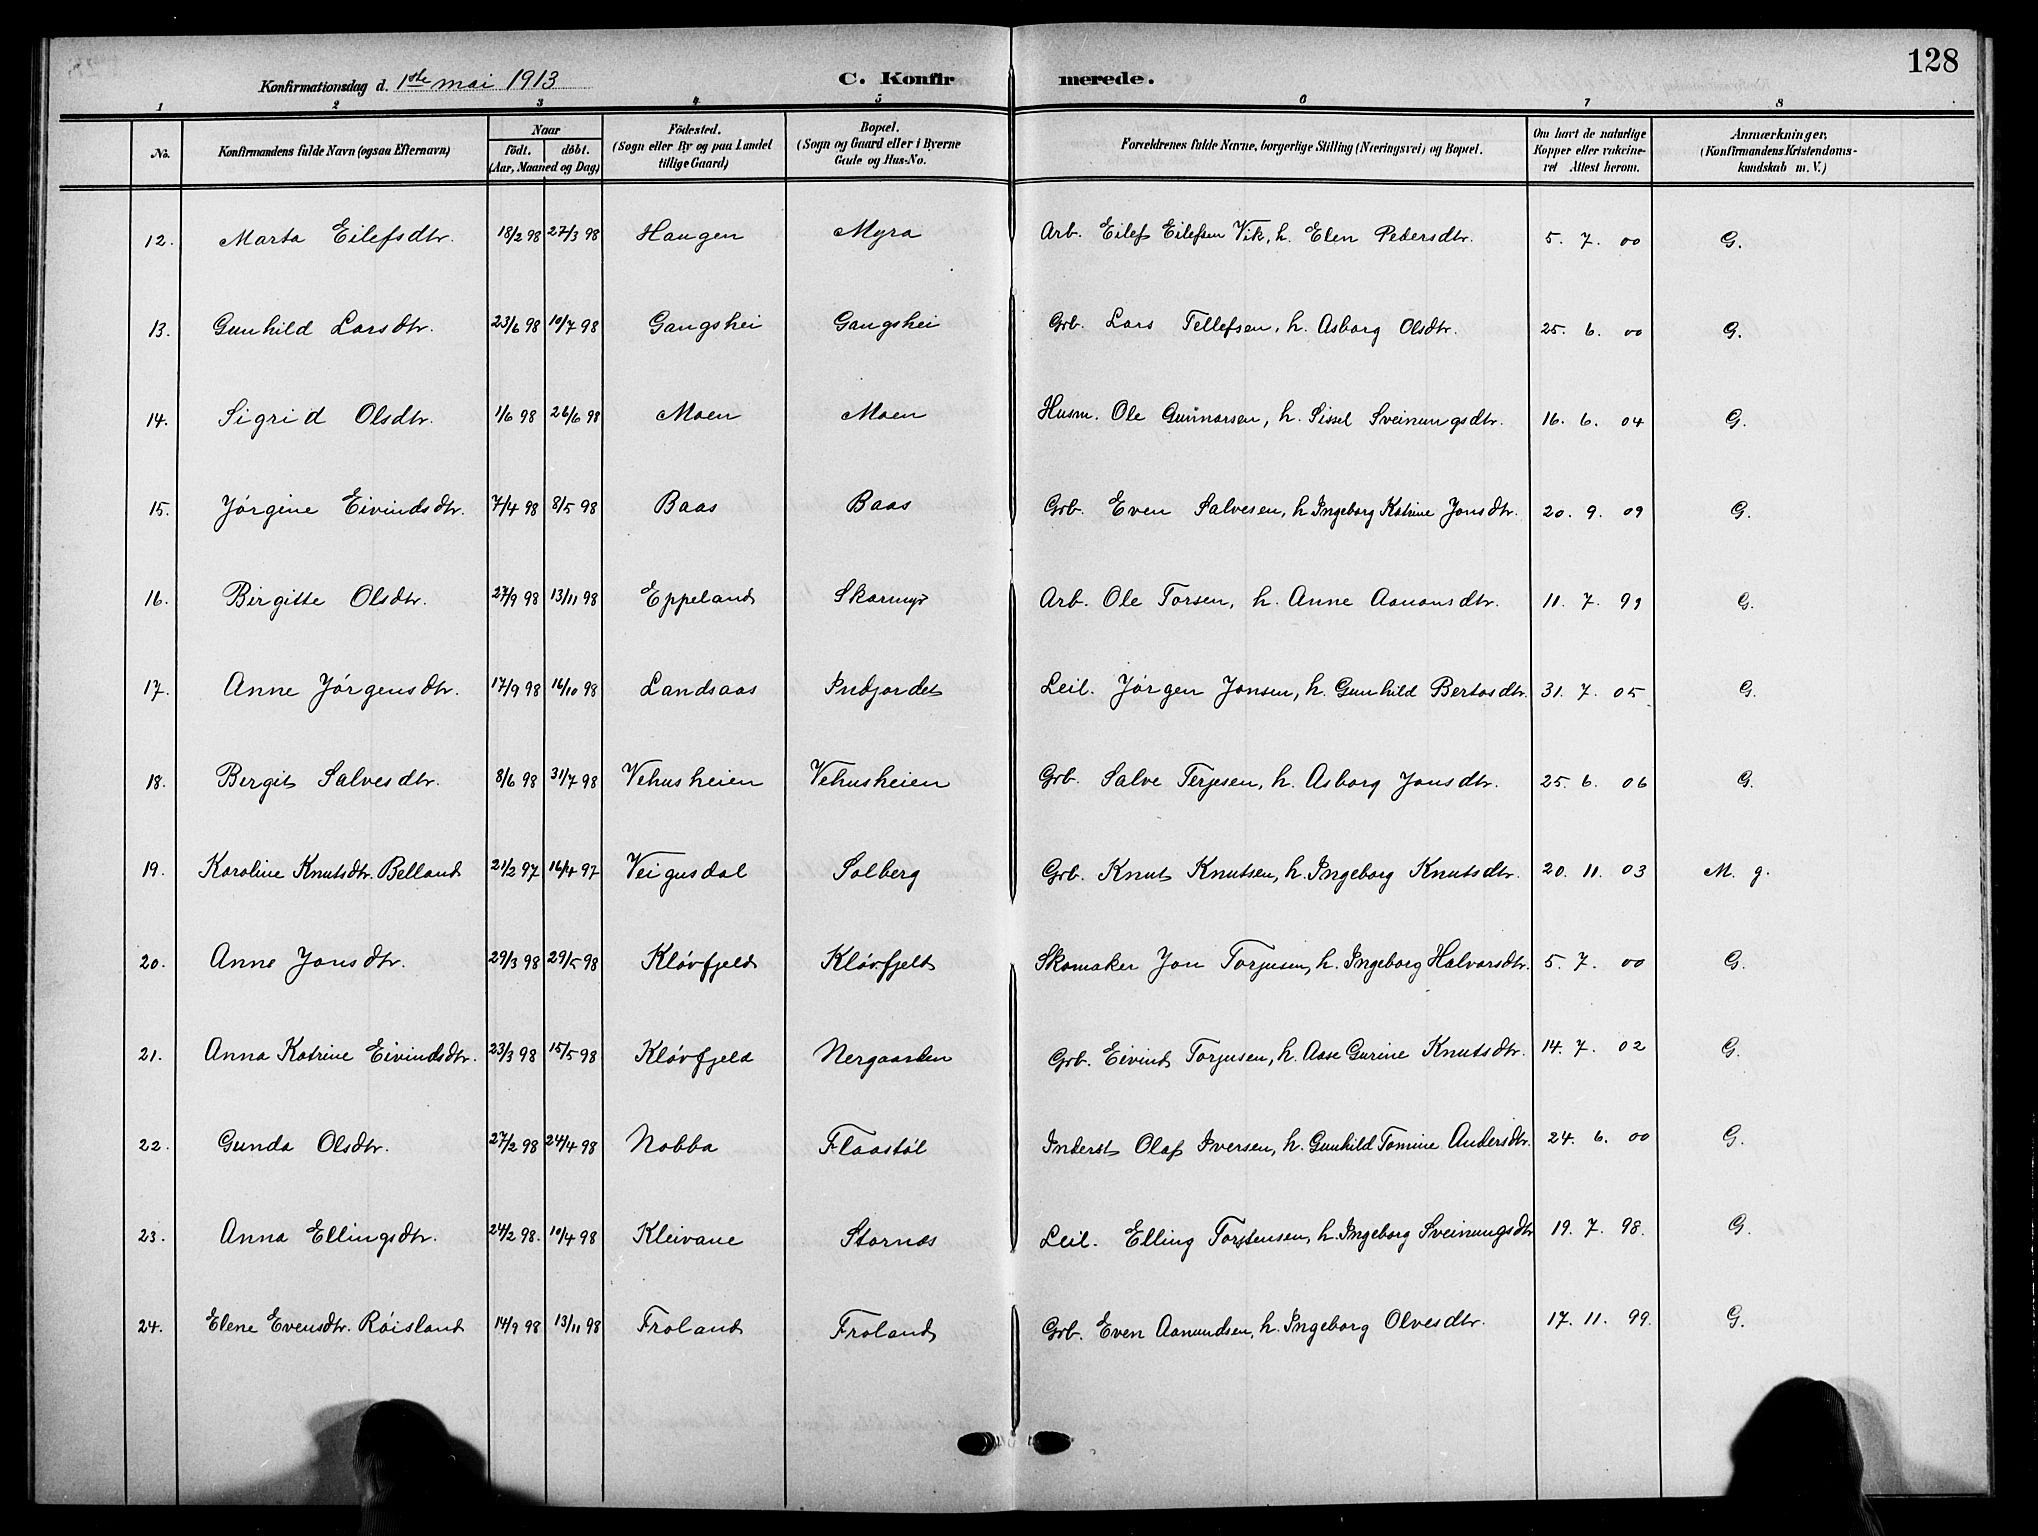 128
Konfirmationsdag d. 1ste mai 1913 C. Konfirmerede.
1 2 3 4 5 6 7 8
No. Konfirmandens fulde Navn (ogsaa Efternavn) Naar födt. döbt. (Aar, Maaned og Dag) Födested. (Sogn eller By og paa Landet tillige Gaard) Bopæl. (Sogn og Gaard eller i Byerne Gade og Hus-No. Forældrenes fulde Navne, borgerlige Stilling (Næringsvei) og Bopæl. Om havt de naturlige Kopper eller vakcineret Attest herom. Anmærkninger, (Konfirmandens Kristendomskundskab m. V.)
12. Marta Eilefsdtr. 18/2 98 27/3 98 Haugen Myra Arb. Eilef Eilefsen Vik, h. Elen Pedersdtr. 5. 7. 00 G.
13. Gunhild Larsdtr. 23/6 98 10/7 98 Gangshei Gangshei Grb. Lars Tellefsen, h. Asborg Olsdtr. 25. 6. 00 G.
14. Sigrid Olsdtr. 1/6 98 26/6 98 Moen Moen Husm. Ole Gunnarsen, h. Sissel Sveinungsdtr. 16. 6. 04 G.
15. Jørgine Eivindsdtr. 7/4 98 8/5 98 Baas Baas Grb. Even Salvesen, h Ingeborg Katrine Jonsdtr. 20. 9. 09 G.
16. Birgitte Olsdtr. 27/9 98 13/11 98 Eppeland Skarmyr Arb. Ole Torsen, h. Anne Aanonsdtr. 11. 7. 99 G.
17. Anne Jørgensdtr. 17/9 98 16/10 98 Landsaas Indjordet Leil. Jørgen Jonsen, h. Gunhild Bertosdtr. 31. 7. 05 G.
18. Bergit Salvesdtr. 8/6 98 31/7 98 Vehusheien Vehusheien Grb. Salve Terjesen, h. Asborg Jonsdtr. 25. 6. 06 G.
19. Karoline Knutsdtr. Belland 21/2 97 16/4 97 Veigusdal Solberg Grb. Knut Knutsen, h. Ingeborg Knutsdtr. 20. 11. 03 M. g.
20. Anne Jonsdtr. 29/3 98 29/5 98 Kløvfjeld Kløvfjelt Skomaker Jon Torjusen, h. Ingeborg Halvorsdtr. 5. 7. 00 G.
21. Anna Katrine Eivindsdtr. 23/3 98 15/5 98 Kløvfjeld Nergaarden Grb. Eivind Torjusen, h. Aase Gurine Knutsdtr. 14. 7. 02 G.
22. Gunda Olsdtr. 27/2 98 24/4 98 Nabba Flaastøl Inderst Olaf Iversen, h. Gunhild Tomine Andersdtr. 24. 6. 00 G.
23. Anna Ellingsdtr. 24/2 98. 10/4 98 Kleivane Stornes Leil. Elling Torstensen, h. Ingeborg Sveinungsdtr 19. 7. 98. G.
24. Elene Evensdtr. Røisland 14/9 98 13/11 98 Froland Froland Grb. Even Aanundsen, h. Ingeborg Olvesdtr. 17. 11. 99. G.